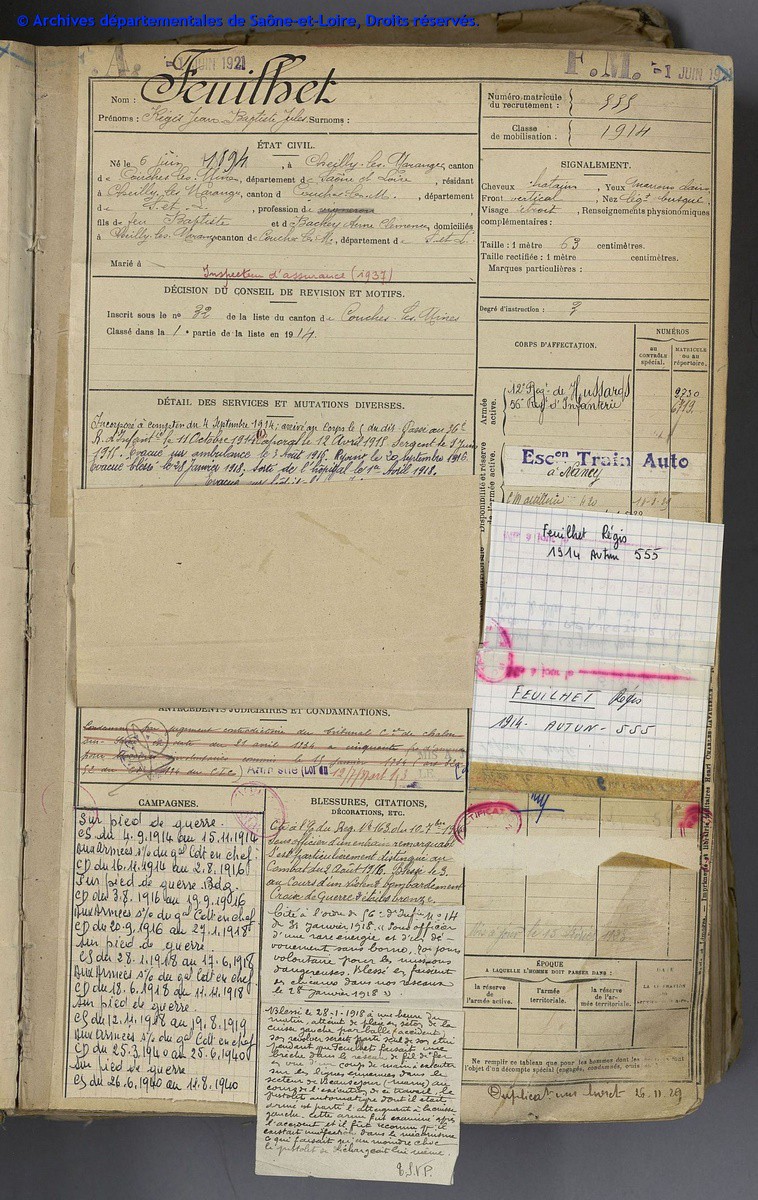 © Archives départementales de Saône-et-Loire, Droits réservés.
JUIN 1921
F.M.
1 JUIN
Feuilhet
Nom :
Prénoms : Régis Jean Baptiste Jules Surnoms :
ÉTAT CIVIL.
Né le 6 juin 1894, à Cheilly-les-Maranges, canton
de Couches-les-Mines, département de Saône et Loire, résidant
à Cheilly les Marange, canton de Couches-L-M., département
de S. et L., profession de
fils de feu Baptiste et de Bachey Anne Clémence, domiciliés
à Cheilly-les-Marang canton de Couches L-M., département de S. et L.
Marié à
Inspecteur d'assurance (1937)
DÉCISION DU CONSEIL DE REVISION ET MOTIFS.
Inscrit sous le n° 32 de la liste du canton de Couches-les-Mines
Classé dans la 1e partie de la liste en 1914.
DÉTAIL DES SERVICES ET MUTATIONS DIVERSES.
Incorporé à compter du 4 Septembre 1914; arrivé au Corps le du dit. Passé au 56e
R. d'Infant le 11 Octobre 1914. Caporal le 12 Avril 1915 Sergent le
1915. Evacué sur ambulance le 3 Août 1916. Rejoint le 20 septembre 1916.
Evacué blessé le 28 Janvier 1918. Sorti de l'hôpital le 1er Avril 1918.
Numéro matricule
du recrutement : 555
Classe
de mobilisation : 1914
SIGNALEMENT.
Cheveux chatain, Yeux marrons clairs
Front vertical, Nez légt busqué
Visage étroit, Renseignements physionomiques
complémentaires :
Taille : 1 mètre 63 centimètres.
Taille rectifiée : 1 mètre centimètres.
Marques particulières :
Degré d'instruction : 3
CORPS D'AFFECTATION.
NUMÉROS
au contrôle spécial.
matricule ou au répertoire.
Armée active.
12e Régt de Hussards
56e Régt d'Infanterie
Disponibilité et réserve de l'armée active.
Escon Train Auto
à Nancy
Feuilhet Régis
1914 Autun 555
FEUILHET Régis
1914 - AUTUN - 555
ANTÉCÉDENTS JUDICIAIRES ET CONDAMNATIONS.
Condamné par jugement contradictoire du tribunal
Amnistié (Loi du
CAMPAGNES.
Sur pied de guerre.
CS du 4.9.1914 au 15.11.1914
Aux Armées s/s du gal Cdt en chef.
CD du 16.11.1914 au 2.8.1916
Sur pied de guerre Bdg.
CD du 3.8.1916 au 19.9.1916
Aux Armées s/s du gal Cdt en chef
CD du 20.9.1916 au 27.1.1918
Sur pied de guerre
CS du 28.1.1918 au 17.6.1918
Aux Armées s/s du gal Cdt en chef
CD du 18.6.1918 au 11.11.1918
Sur pied de guerre
CS du 12.11.1918 au 19.8.1919
Aux Armées s/s du gal Cdt en chef
CD du 25.3.1940 au 25.6.1940
Sur pied de guerre
CS du 26.6.1940 au 11.8.1940
BLESSURES, CITATIONS,
DÉCORATIONS, ETC.
Cité à l'O. du Rég. N° 163 du 10.
Sous officier d'un entrain remarquable
S'est particulièrement distingué au
Combat du 2 Août 1916. Blessé le 3.
au Cours d'un violent bombardement
Croix de Guerre étoile bronze.
Cité à l'ordre du 56e d'Infie n° 14
du 31 janvier 1918. « Sous officier
d'une rare énergie et d'un dé-
vouement sans borne, toujours
volontaire pour les missions
dangereuses. Blessé en faisant
en chicane dans nos réseaux
le 28 janvier 1918 »
Blessé le 28-1-1918 à une heure du
matin, atteint de plaie en séton de la
cuisse gauche par balle (accident)
son revolver serait parti seul de son étui
pendant que Feuilhet faisait une
brèche dans le réseau de fil de fer
en vue d'un coup de main à exécuter
sur les lignes ennemies dans le
secteur de Beauséjour (Marne) au
cours de l'exécution de ce travail, le
pistolet automatique dont il était
armé est parti l'atteignant à la cuisse
gauche. Cette arme fut examinée après
l'accident et il fut reconnu qu'il
existait une fection dans le mécanisme
ce qui faisait qu'au moindre choc
le pistolet se déchargeait lui même.
T.S.V.P.
ÉPOQUE
A LAQUELLE L'HOMME DOIT PASSER DANS :
la réserve de l'armée active.
l'armée territoriale.
la réserve de l'armée territoriale.
Ne remplir ce tableau que pour les hommes dont les
l'objet d'un décompte spécial (engagés,
Duplicat livret 26.11.29